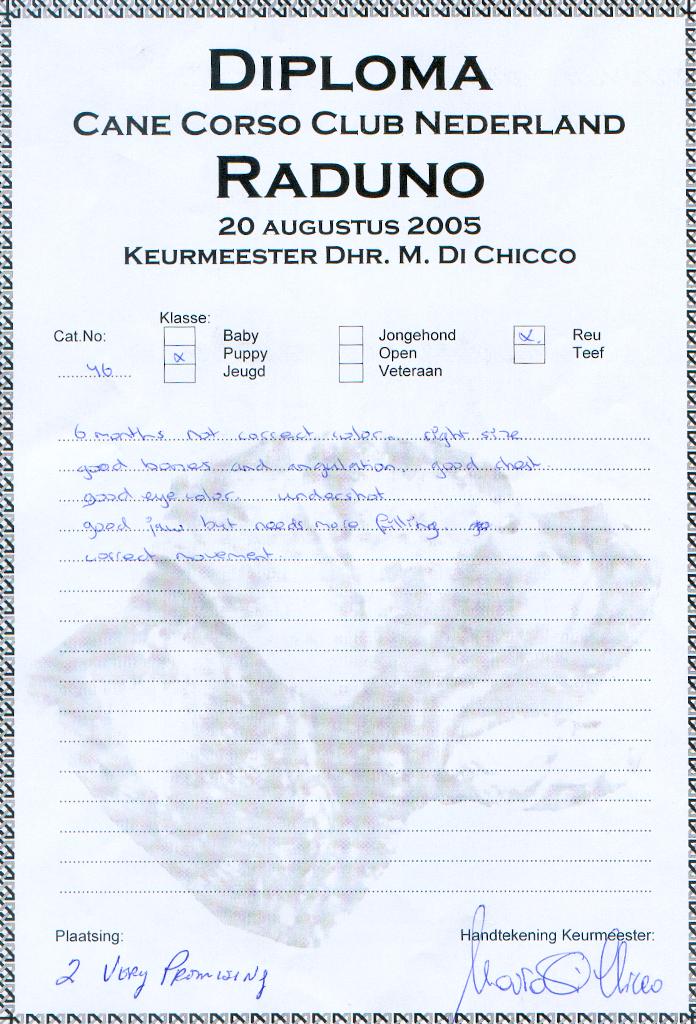 DIPLOMA
CANE CORSO CLUB NEDERLAND
RADUNO
20 AUGUSTUS 2005
KEURMEESTER DHR. M. DI CHICCO
Klasse:
Cat.No: Baby Jongehond x Reu
46 x Puppy Open Teef
Jeugd Veteraan
6 months not correct color. right size
good bones and angulation. good chest.
good eye color. undershot
good jaw but needs more filling
correct movement.
Plaatsing: Handtekening Keurmeester:
2 VERY PROMISING